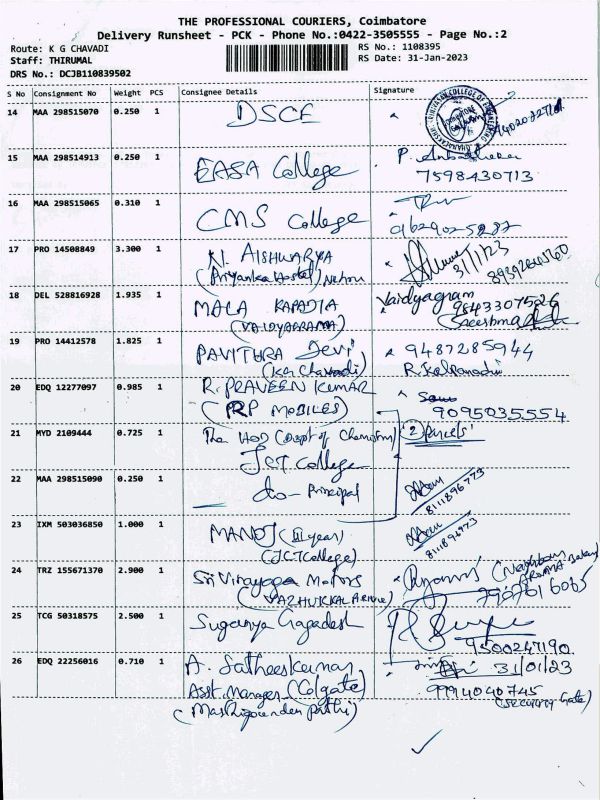 THE PROFESSIONAL COURIERS, Coimbatore
Delivery Runsheet - PCK - Phone No.:0422-3505555 - Page No.:2
Route: K G CHAVADI
RS No.: 1108395
Staff: THIRUMAL
RS Date: 31-Jan-2023
DRS No.: DCJB110839502
S No Consignment No Weight PCS Consignee Details Signature
14 MAA 298515070 0.250 1 DSCE
15 MAA 298514913 0.250 1 EASA College P.
7598430713
16 MAA 298515065 0.310 1 CMS College
9629025287
17 PRO 14508849 3.300 1 AISHWARYA 31/1/23
(Priyanka Hostel) Nehru
18 DEL 528816928 1.935 1 MALA KAPADIA Vaidyagram
(VAIDYAGRAMA) 9843307526
19 PRO 14412578 1.825 1 PAVITHRA Devi 9487285944
(KG Chavadi) R.
20 EDQ 12277097 0.985 1 R. PRAVEEN KUMAR
(PRP MOBILES) 9095035554
21 MYD 2109444 0.725 1 The HOD (Dept of Chemistry) "2 Parcels"
JCT College
22 MAA 298515090 0.250 1
do- Principal 8111896773
23 IXM 503036850 1.000 1 MANOJ (III year)
(JCT College) 8111896773
24 TRZ 155671370 2.900 1 Sri Vinayaga Motors
(VAZHUKKAL
25 TCG 50318575 2.500 1 Suganya
9500247190
26 EDQ 22256016 0.710 1 A. Satheeskumar 31/01/23
Asst. Manager (Colgate) 9994040745
(Security Gate)